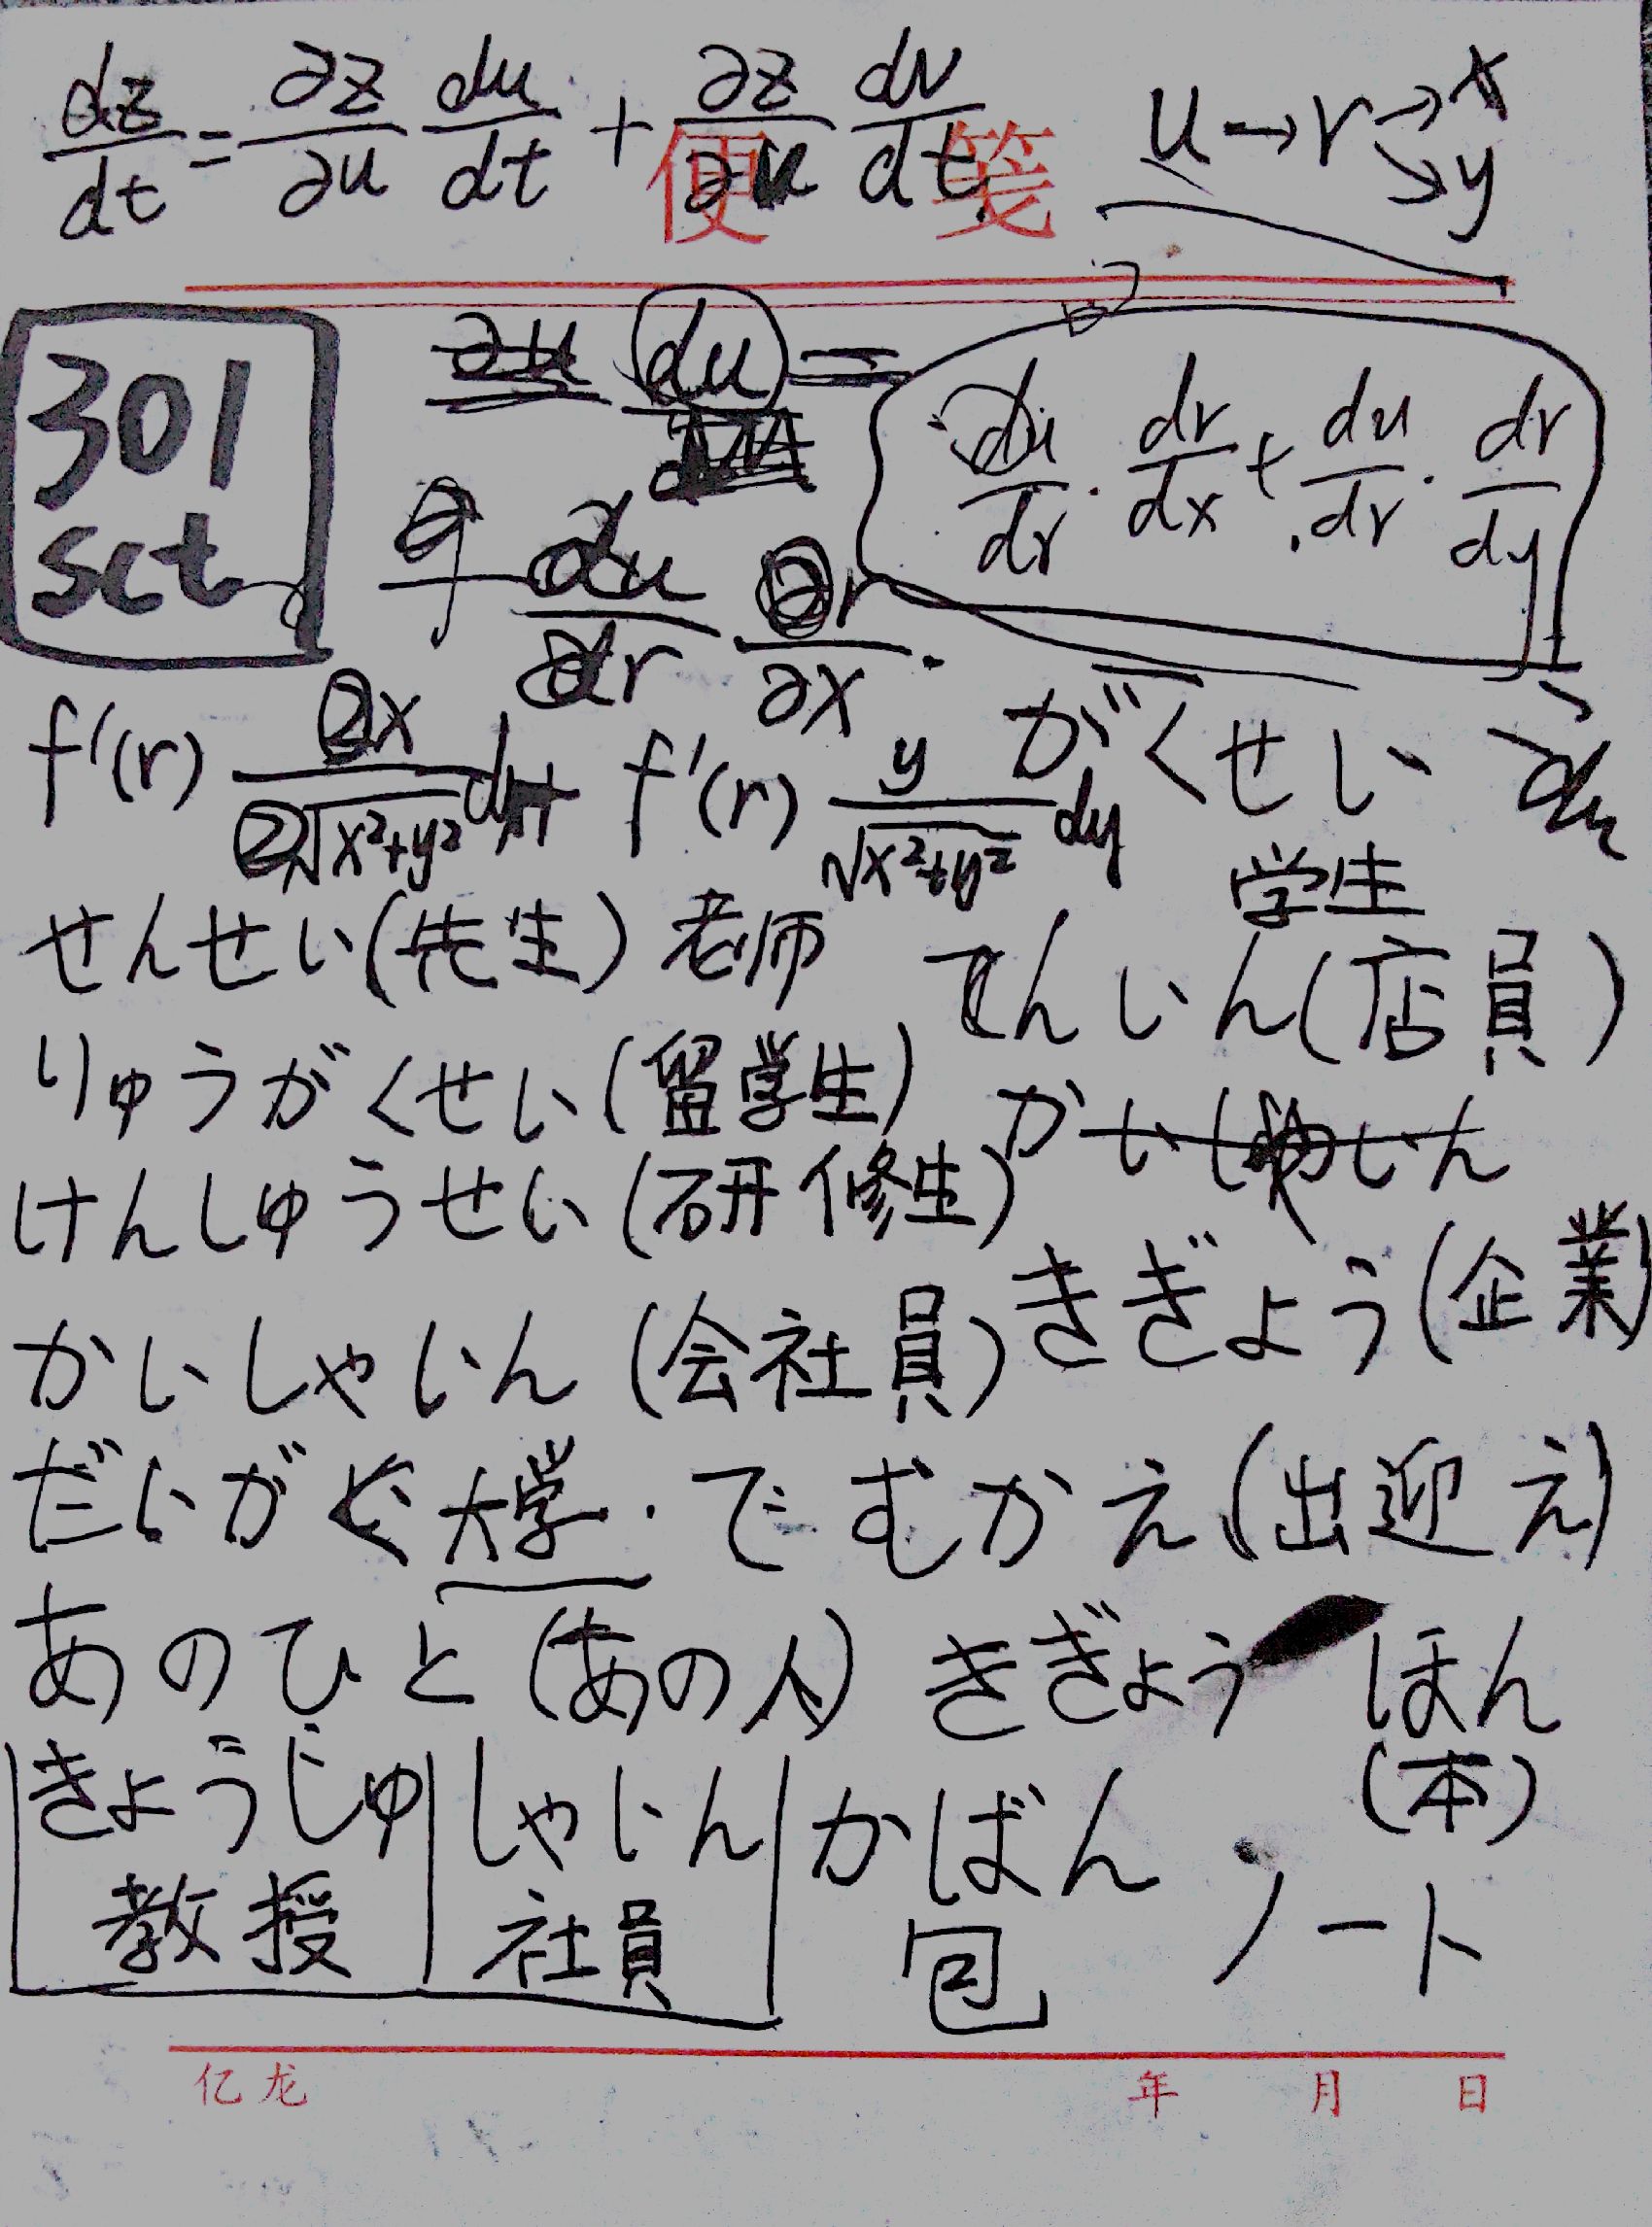 dz/dt = ∂z/∂u du/dt + ∂z/∂u dv/dt u → r → x → y
便 笺
301 du = du/dr · dr/dx + du/dr · dr/dy
sct du/dr ∂r/∂x ·
f'(r) 2x/2√x²+y² dx + f'(r) y/√x²+y² dy がくせい
学生
せんせい(先生) 老师 てんいん(店員)
りゅうがくせい(留学生) かいしゃいん
けんしゅうせい(研修生) きぎょう(企業)
かいしゃいん(会社員)
だいがく 大学 · でむかえ(出迎え)
あのひと(あの人) きぎょう ほん
(本)
きょうじゅ しゃいん かばん ノート
教授 社員 包
亿龙 年 月 日